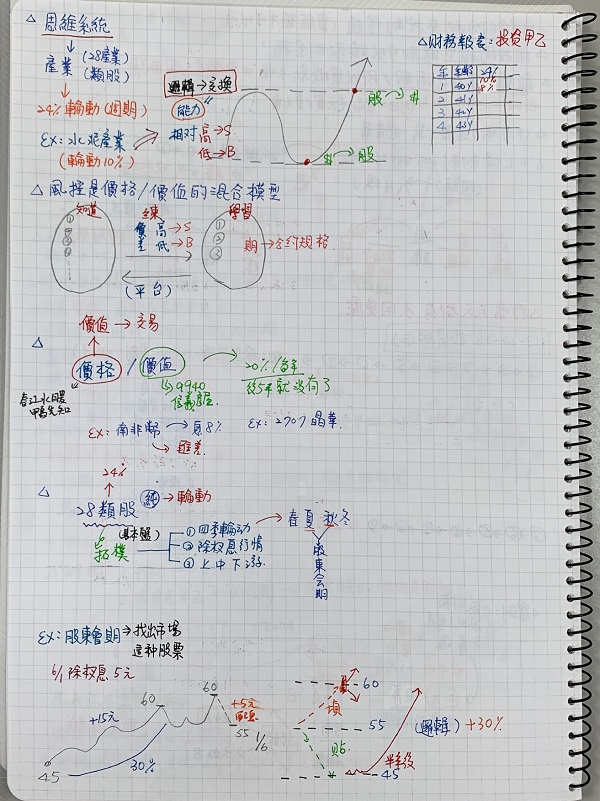 △ 思維系統
↓ (28產業)
產業 (類股)
↓
24% 輪動 (週期)
EX: 水泥產業
(輪動10%)
邏輯→交換
能力"
相對 高→S
低→B
股 → $
$ → 股
△ 财務報表: 投资甲乙
年 年齡 24%
10%
1 40Y 8%
2 41Y
3 42Y
4 43Y
△ 風控是價格/價值的混合模型
知道
①
②
③
④
練
價 高→S
差 低→B
(平台)
學習
①
②
③
期→合約規格
價值 → 交易
△
價格 / 價值
春江水暖
鴨先知
↳ 9940
信義房屋
20% / 每年
後5年就沒有了
EX: 南非幣 → 原8%
↳ 匯差
EX: 2707 晶華
24%
△
28類股 純→輪動
(基本盤)
拓樸
① 四季輪动
② 除权息行情
③ 上中下游
春夏秋冬
股東会期
EX: 股東會期→找出市場
這种股票
6/1 除权息 5元
60
60
+15元
+5元
配息
55 1/6
30%
45
60
填
55
貼
(邏輯) +30%
半年後
45